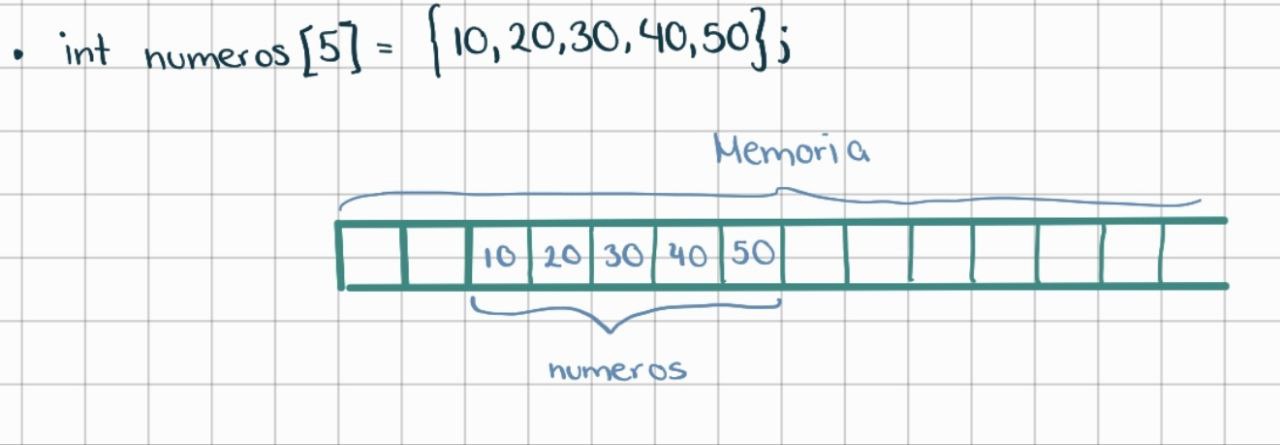 • int numeros[5] = {10,20,30,40,50};
Memoria
10 20 30 40 50
numeros